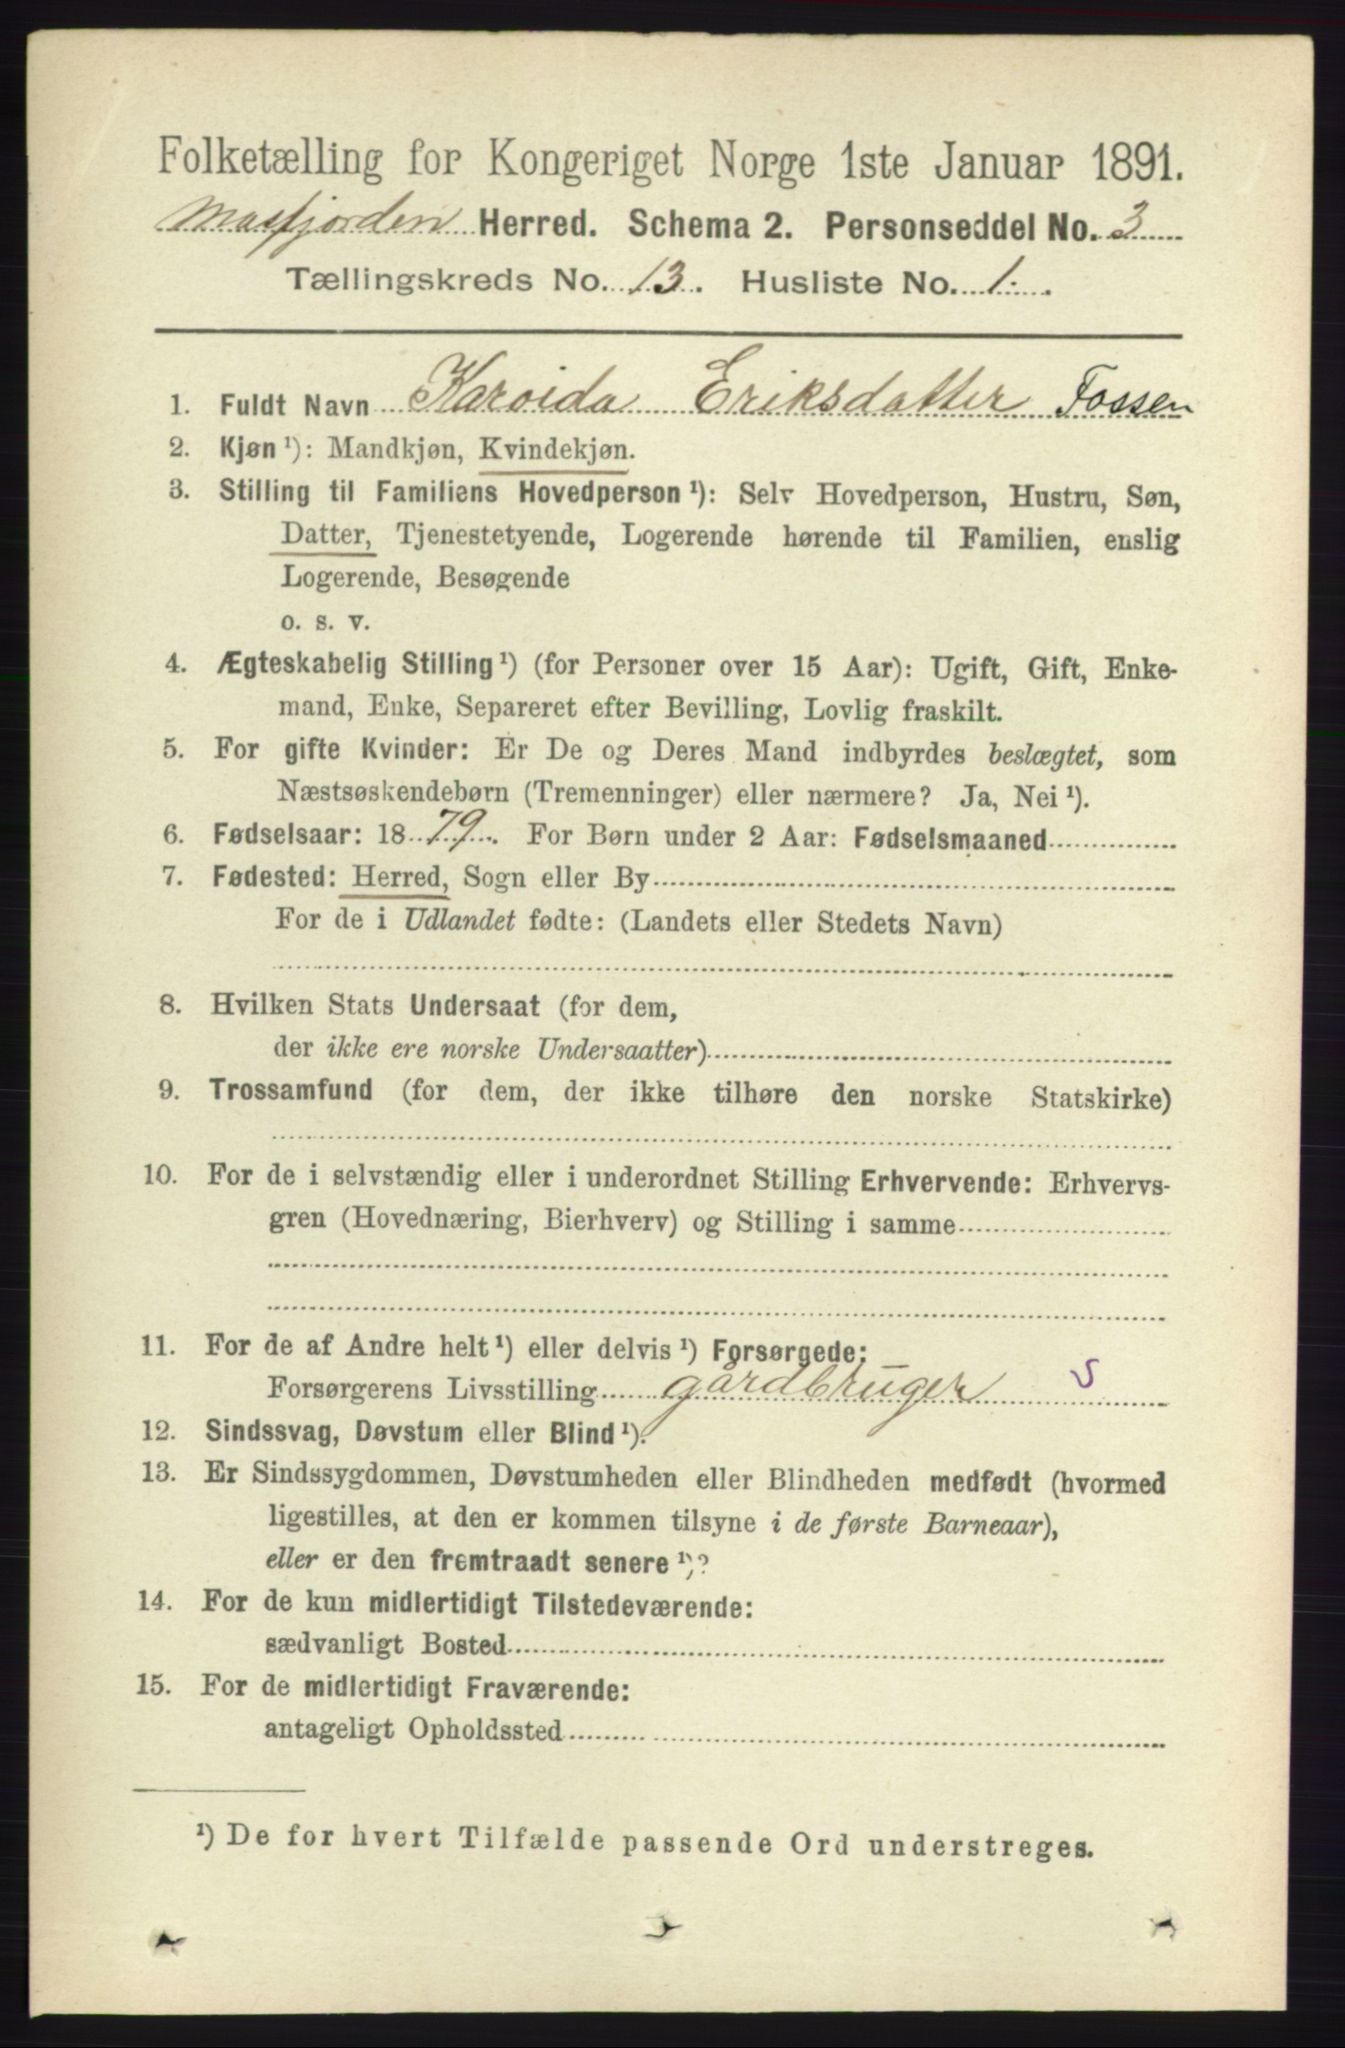 Folketælling for Kongeriget Norge 1ste Januar 1891.
Masfjorden Herred. Schema 2. Personseddel No. 3
Tællingskreds No. 13. Husliste No. 1.
1. Fuldt Navn Karoida Eriksdatter Fossen
2. Kjøn¹): Mandkjøn, Kvindekjøn.
3. Stilling til Familiens Hovedperson¹): Selv Hovedperson, Hustru, Søn,
Datter, Tjenestetyende, Logerende hørende til Familien, enslig
Logerende, Besøgende
o. s. v.
4. Ægteskabelig Stilling¹) (for Personer over 15 Aar): Ugift, Gift, Enke-
mand, Enke, Separeret efter Bevilling, Lovlig fraskilt.
5. For gifte Kvinder: Er De og Deres Mand indbyrdes beslægtet, som
Næstsøskendebørn (Tremenninger) eller nærmere? Ja, Nei¹).
6. Fødselsaar: 1879. For Børn under 2 Aar: Fødselsmaaned
7. Fødested: Herred, Sogn eller By
For de i Udlandet fødte: (Landets eller Stedets Navn)
8. Hvilken Stats Undersaat (for dem,
der ikke ere norske Undersaatter)
9. Trossamfund (for dem, der ikke tilhøre den norske Statskirke)
10. For de i selvstændig eller i underordnet Stilling Erhvervende: Erhvervs-
gren (Hovednæring, Bierhverv) og Stilling i samme
11. For de af Andre helt¹) eller delvis¹) Forsørgede:
Forsørgerens Livsstilling gårdbruger s
12. Sindssvag, Døvstum eller Blind¹).
13. Er Sindssygdommen, Døvstumheden eller Blindheden medfødt (hvormed
ligestilles, at den er kommen tilsyne i de første Barneaar),
eller er den fremtraadt senere¹)?
14. For de kun midlertidigt Tilstedeværende:
sædvanligt Bosted
15. For de midlertidigt Fraværende:
antageligt Opholdssted
¹) De for hvert Tilfælde passende Ord understreges.